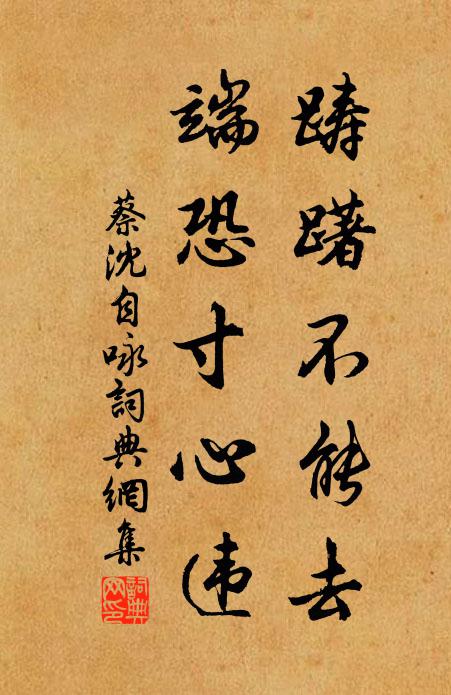 踌躇不能去
端恐寸心违
蔡沈自咏詞典網集
詞典网印